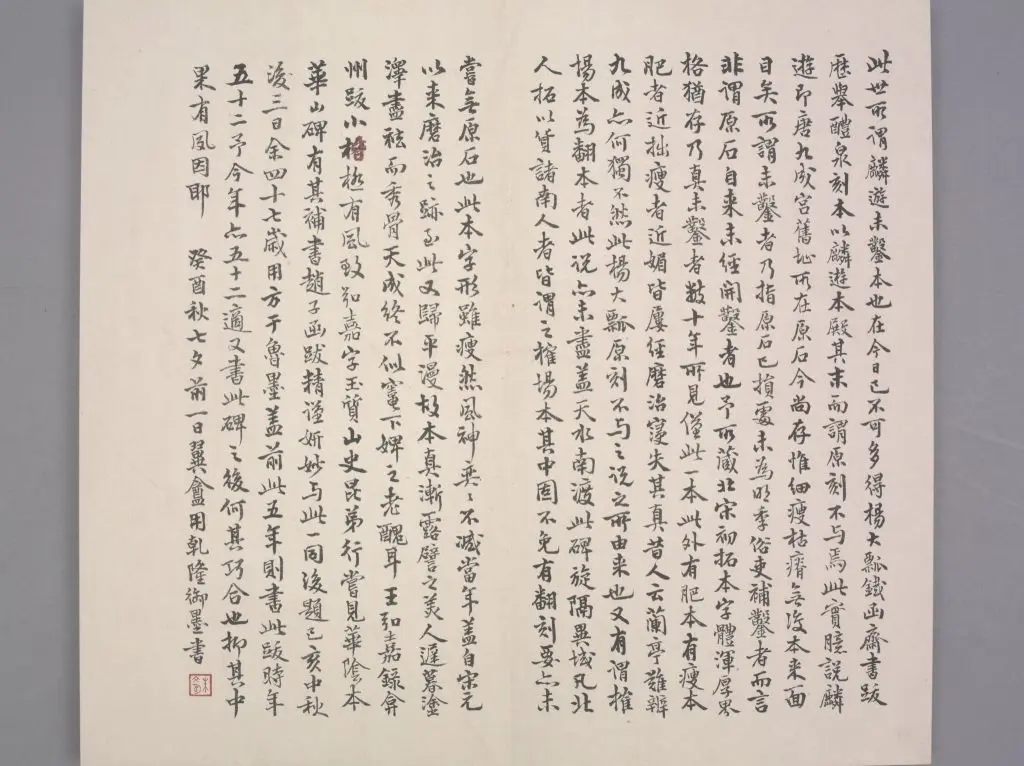 此世所謂麟遊未鑿本也在今日已不可多得楊大瓢鐵函齋書跋
歷舉醴泉刻本以麟遊本殿其末而謂原刻不与焉此實臆說麟
遊即唐九成宮舊址所在原石今尚存惟細瘦枯瘠無復本来面
目矣所謂未鑿者乃指原石已損處未為明季俗吏補鑿者而言
非謂原石自来未經開鑿者也予所藏北宋初拓本字體渾厚界
格猶存乃真未鑿者數十年所見僅此一本此外有肥本有瘦本
肥者近拙瘦者近媚皆屢經磨治寖失其真昔人云蘭亭難辨
九成亦何獨不然此楊大瓢原刻不与之説之所由来也又有謂榷
場本為翻本者此説亦未盡蓋天水南渡此碑旋隔異域凡北
人拓以貨諸南人者皆謂之榷場本其中固不免有翻刻要亦未
嘗無原石也此本字形雖瘦然風神奕〻不減當年蓋自宋元
以来磨治之跡至此又歸平漫故本真漸露譬之美人遲暮塗
澤盡祛而秀骨天成終不似竈下婢之老醜耳王弘嘉錄弇
州跋小楷極有風致弘嘉字玉質山史昆弟行嘗見華陰本
華山碑有其補書趙子函跋精谨妍妙与此一同後題己亥中秋
後三日余四十七歲用方于魯墨蓋前此五年則書此跋時年
五十二予今年亦五十二適又書此碑之後何其巧合也抑其中
果有夙因耶 癸酉秋七夕前一日翼盦用乾隆御墨書